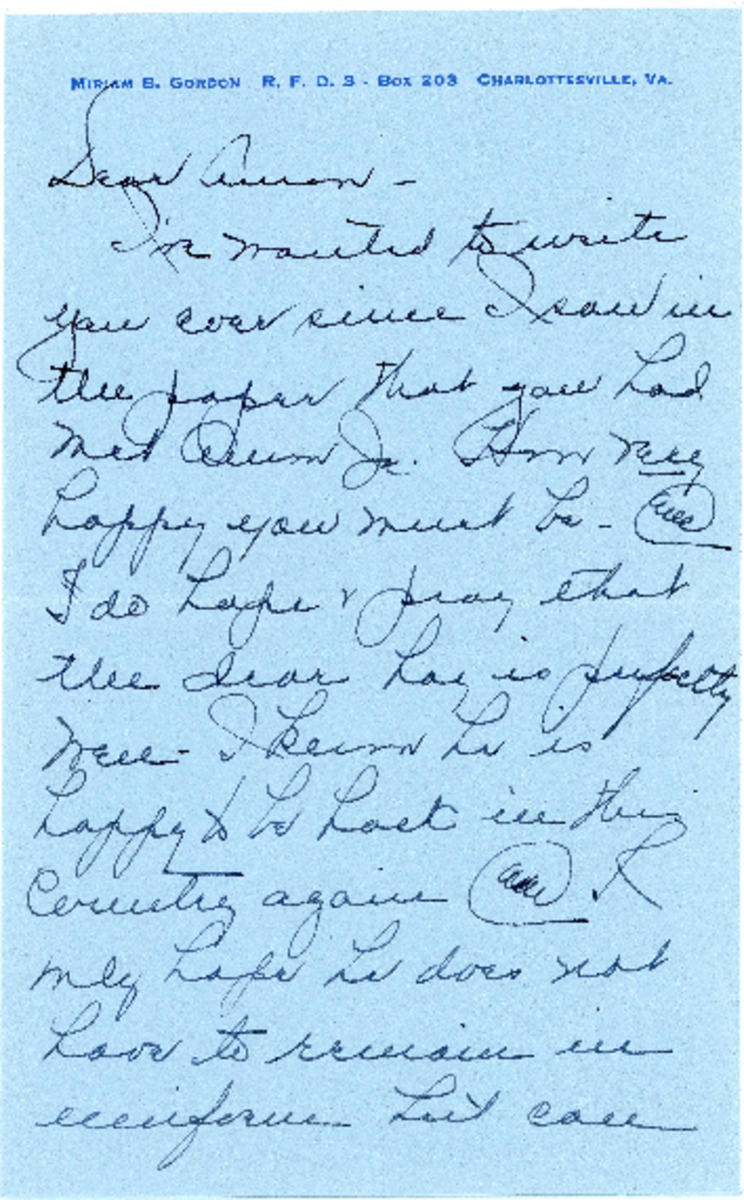 MIRIAM B. GORDON R. F. D. 3 - BOX 203 CHARLOTTESVILLE, VA.
Dear -
I've wanted to write
you ever since I saw in
the paper that you had
met Jr. How very
happy you must be -
I do hope & pray that
the dear boy is perfectly
well - I know he is
happy to be back in this
Country again
my hope he does not
have to remain in
uniform but can